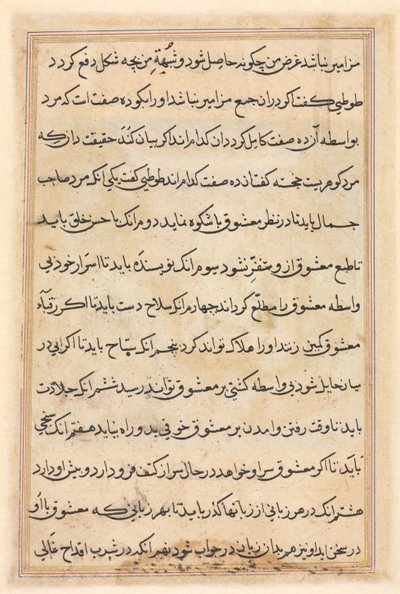 مزامیر نباشد غرض من چکونه حاصل شود و شبهة من بچه شکل دفع کردد
طوطی کفت کر دران جمع مزامیر نباشد او را بکو ده صفت است که مرد
بواسطه آن ده صفت کامل کردد ان کدام اند اکر بیان کند حقیقت دان که
مرد کوهریست خجسته کفت ان ده صفت کدام اند طوطی کفت یکی انک مرد صاحب
جمال باید تا در نظر معشوق باشکوه نماید دوم انک با حسن خلق باید
تا طبع معشوق از و متنفر نشود سوم انک نویسنده باید تا اسرار خود بی
واسطه معشوق را مطلع کرداند چهارم انک سلاح دست باید تا اکر رقباء
معشوق کمین زنند او را هلاک تواند کرد پنجم انک سباح باید تا اکر ابی در
میان حایل شود بی واسطه کشتی بر معشوق تواند رسید ششم انک جلادت
باید تا وقت رفتن و امدن بر معشوق خوفی بدو راه نیابد هفتم انک سخی
باید تا اکر معشوق سر او خواهد در حال سر از کتف فرود ارد و پیش او دارد
هشتم انک در هر زبانی از زبانها کذر باید تا بهر زبانی که معشوق با او
در سخن اید او نیز هم بدان زبان در جواب شود نهم انکه در شرب اقداح غالی